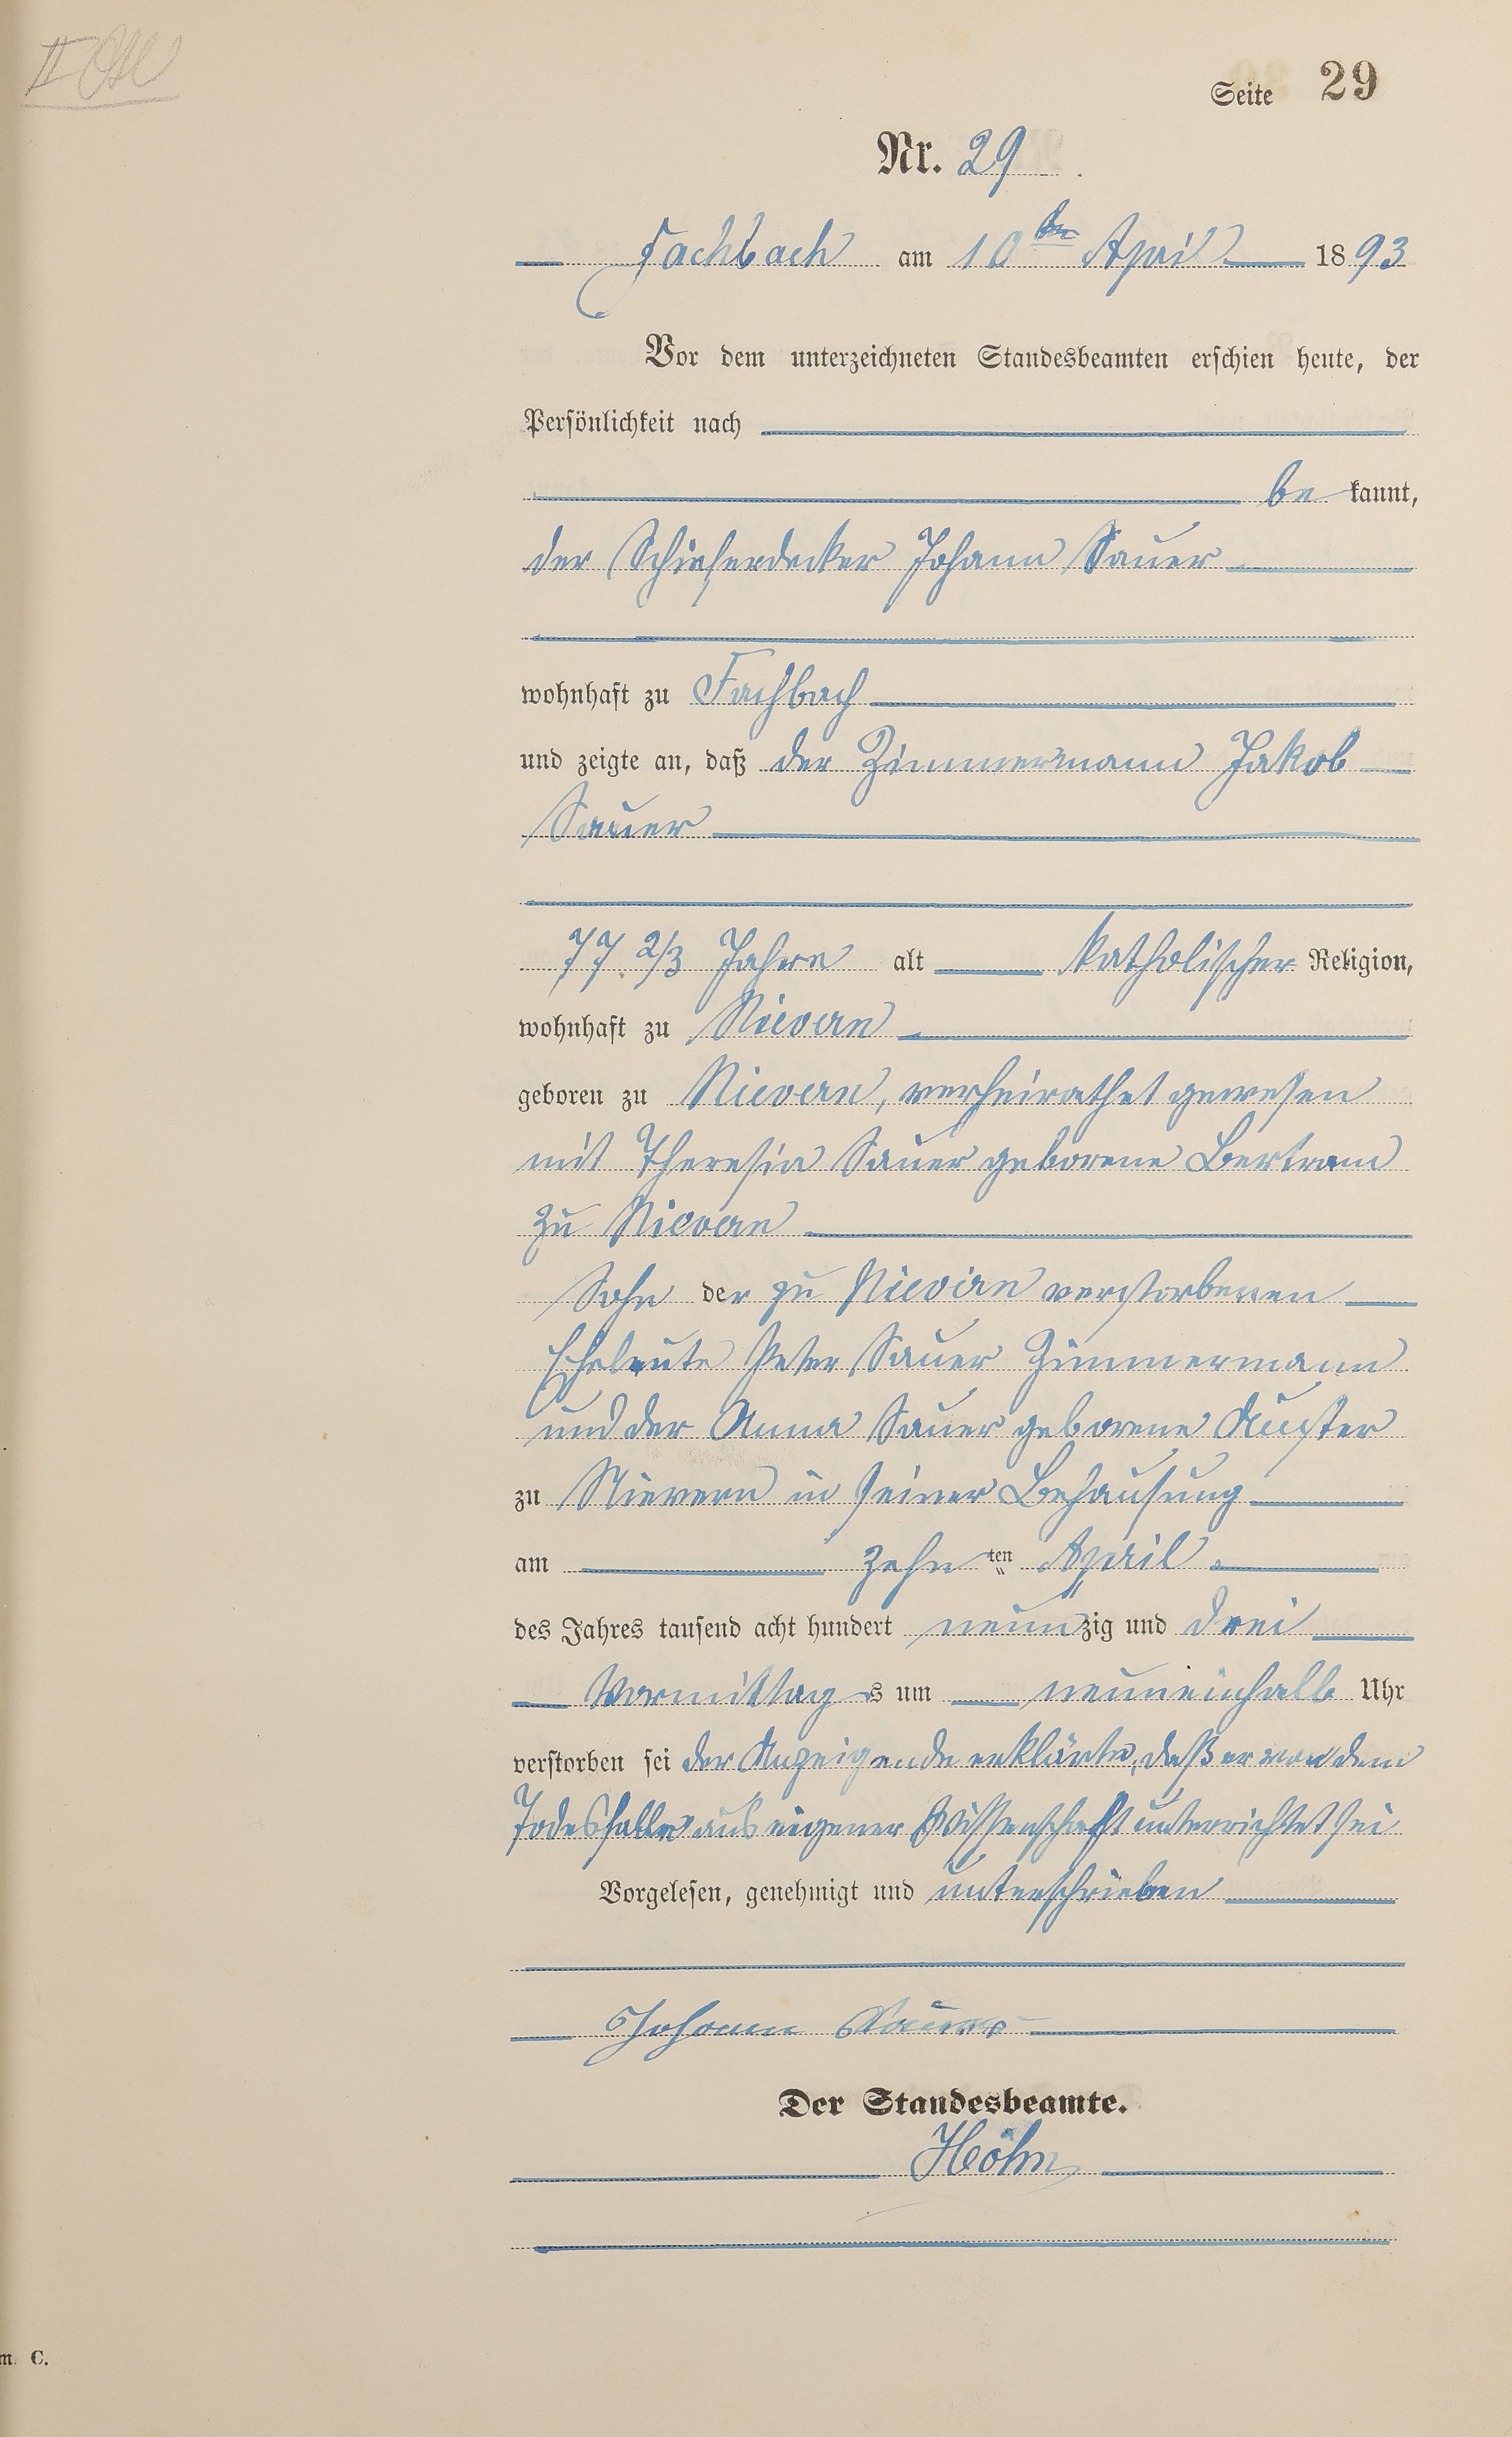 Seite 29
Nr. 29
Fachbach am 10ten April 1893
Vor dem unterzeichneten Standesbeamten erschien heute, der
Persönlichkeit nach
be kannt,
der Schieferdecker Johann Sauer
wohnhaft zu Fachbach
und zeigte an, daß der Zimmermann Jakob
Sauer
77 2/3 Jahre alt katholischer Religion,
wohnhaft zu Nievern
geboren zu Nievern, verheirathet gewesen
mit Theresia Sauer geborene Bertram
zu Nievern
Sohn der zu Nievern verstorbenen
Eheleute Peter Sauer Zimmermann
und der Anna Sauer geborene
zu Nievern in seiner Behausung
am zehn ten April
des Jahres tausend acht hundert neun zig und drei
Vormittag s um neuneinhalb Uhr
verstorben sei der Anzeigende erklärte, daß er von dem
Todesfalle aus eigener Wissenschaft unterrichtet sei
Vorgelesen, genehmigt und unterschrieben
Johann Sauer
Der Standesbeamte.
Höhn
m. C.